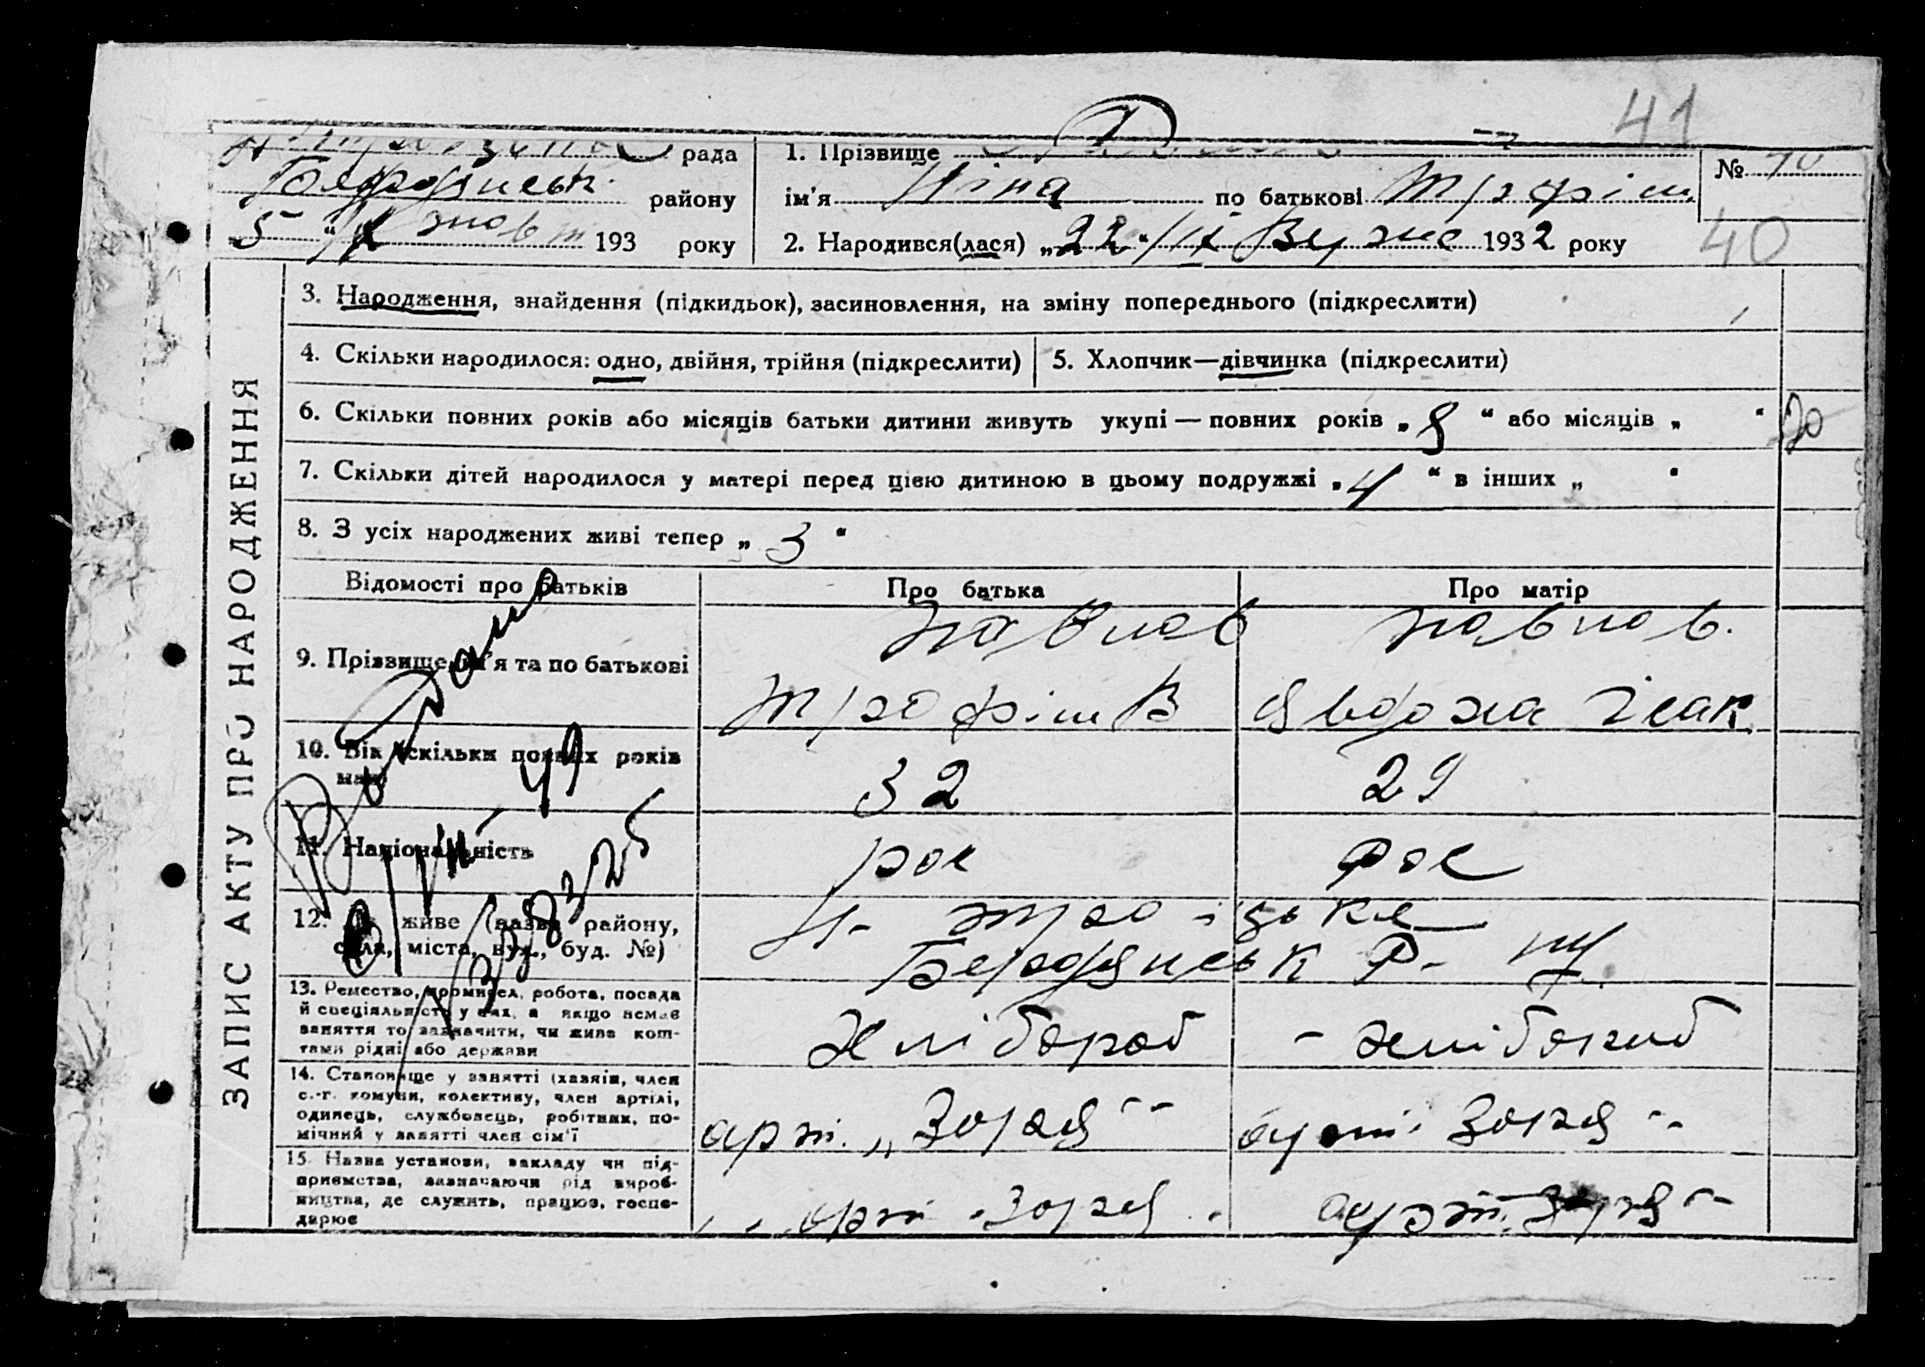 41
рада
1. Прізвище
№ 40
Бердянськ. району
ім'я Ніна по батькові Трофім.
5 "/X жовт 193 року
2. Народився(лася) „22"/IX Вуже 1932 року
40
ЗАПИС АКТУ ПРО НАРОДЖЕННЯ
3. Народження, знайдення (підкидьок), засиновлення, на зміну попереднього (підкреслити)
4. Скільки народилося: одно, двійня, трійня (підкреслити)
5. Хлопчик—дівчинка (підкреслити)
6. Скільки повних років або місяців батьки дитини живуть укупі — повних років „8" або місяців „ "
20
7. Скільки дітей народилося у матері перед цією дитиною в цьому подружжі „4" в інших „ "
8. З усіх народжених живі тепер „3"
Відомості про батьків
Про батька
Про матір
9. Прізвище, ім'я та по батькові
Павлов
Павлов.
Трофім В
Явдоха Ісак.
10. Вік (скільки повних років має)
32
29
11. Національність
рос
рос
12. Де живе (назва району,
села, міста, вул., буд. №)
Н- Троїцьке
Бердянськ Р-
13. Ремество, промисел, робота, посада
й спеціяльність у них, а якщо немає
заняття то зазначити, чи жива кош-
тами рідні або держави
Хлібороб
- хлібороб
14. Становище у занятті (хазяїн, член
с.-г. комуни, колективу, член артілі,
одинець, службовець, робітник, по-
мічний у занятті член сім'ї
арт. „Зоря"
арт. Зоря"
15. Назва установи, закладу чи під-
приємства, зазначаючи рід вироб-
ництва, де служить, працює, госпо-
дарює
арт. Зоря
арт. Зоря"